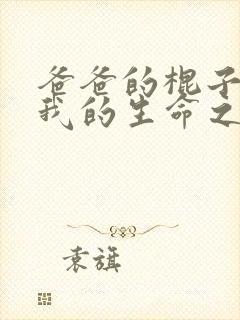 爸爸的棍子
我的生命之
袁旗